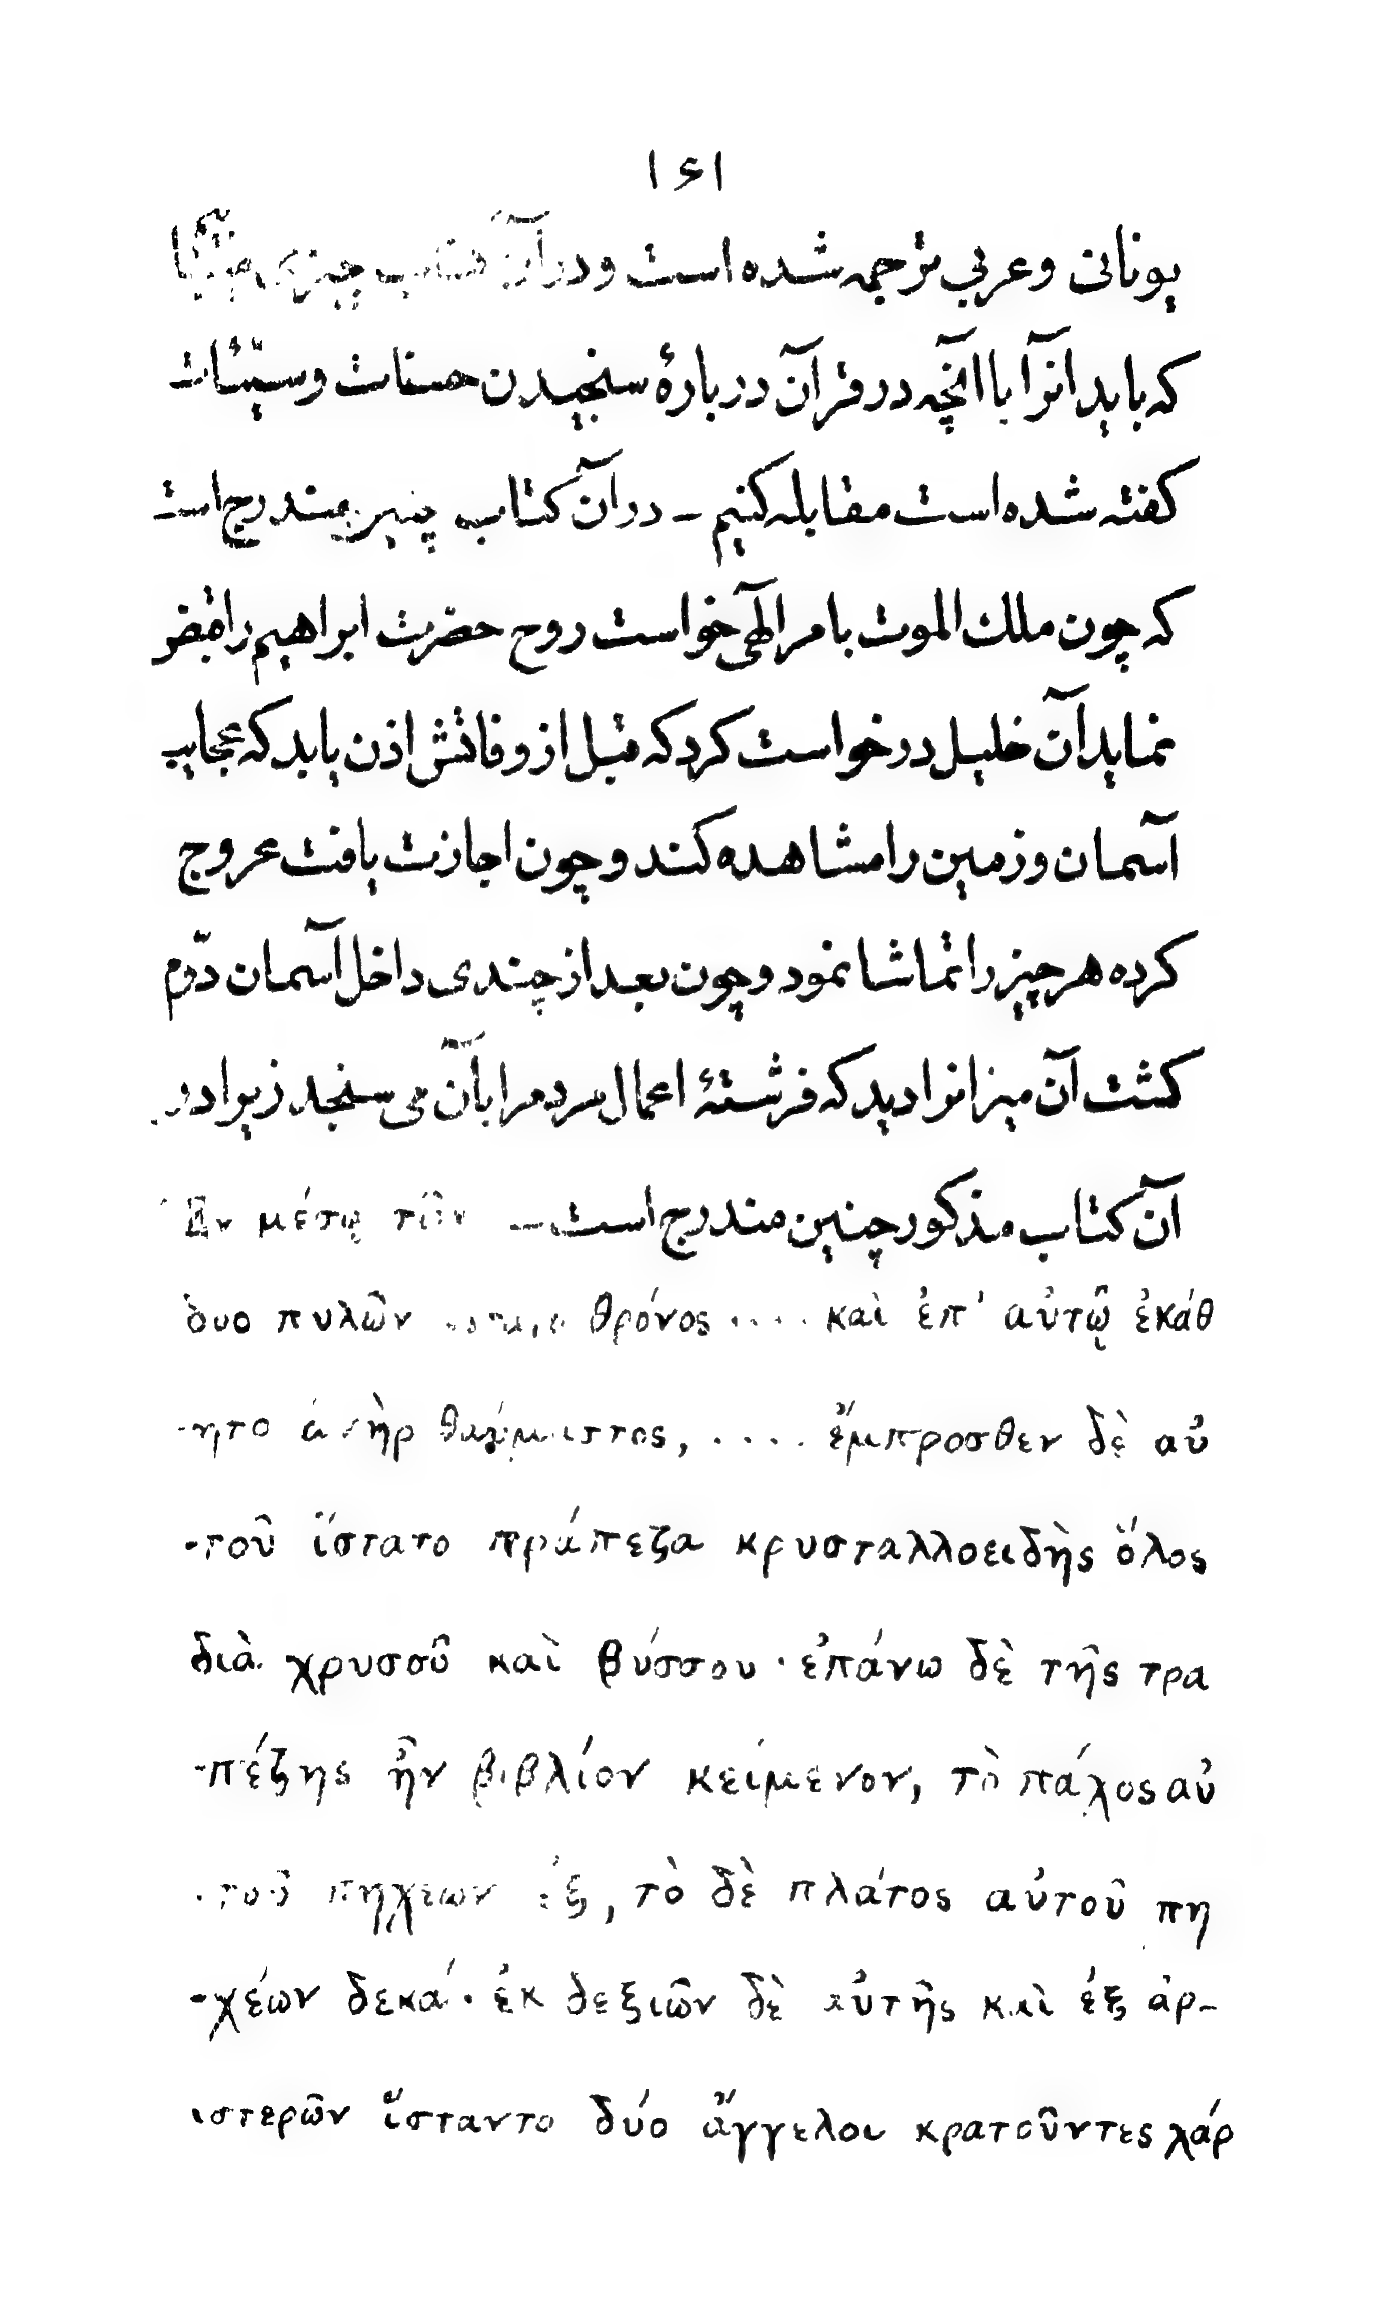 ۱۶۱
یونانی وعربی ترجمه شده است ودر آن کتاب چیزی
که باید انرا با آنچه در قرآن دربارهٔ سنجیدن حسنات وسیّئات
کفته شده است مقابله کنیم – در آن کتاب چنین مندرج است
که چون ملك الموت بامر الٓهی خواست روح حضرت ابراهیم را قبض
نماید آن خلیل درخواست کرد که قبل از وفاتش اذن یابد که عجایب
آسمان وزمین را مشاهده کند وچون اجازت یافت عروج
کرده هر چیز را تماشا نمود وچون بعد از چندی داخل آسمان دوّم
کشت آن میزانرا دید که فرشتهٔ اعمال مردمرا بآن می سنجد زیرا در
آن کتاب مذکور چنین مندرج است – Ἐν μέσῳ τῶν
δυο πυλῶν θρόνος .... καὶ ἐπ' αὐτῷ ἐκάθ
-ητο ἀνὴρ θαυμαστος, .... ἔμπροσθεν δὲ αὐ
-τοῦ ἵστατο τράπεζα κρυσταλλοειδὴς ὅλος
διὰ χρυσοῦ καὶ βύσσου · ἐπάνω δὲ τῆς τρα
-πέζης ἦν βιβλίον κείμενον, τὸ πάχος αὐ
-τοῦ πηχεων ἑξ, τὸ δὲ πλάτος αὐτοῦ πη
-χέων δεκά · ἐκ δεξιῶν δὲ αὐτῆς καὶ ἐξ ἀρ-
ιστερῶν ἵσταντο δύο ἄγγελοι κρατοῦντες χάρ